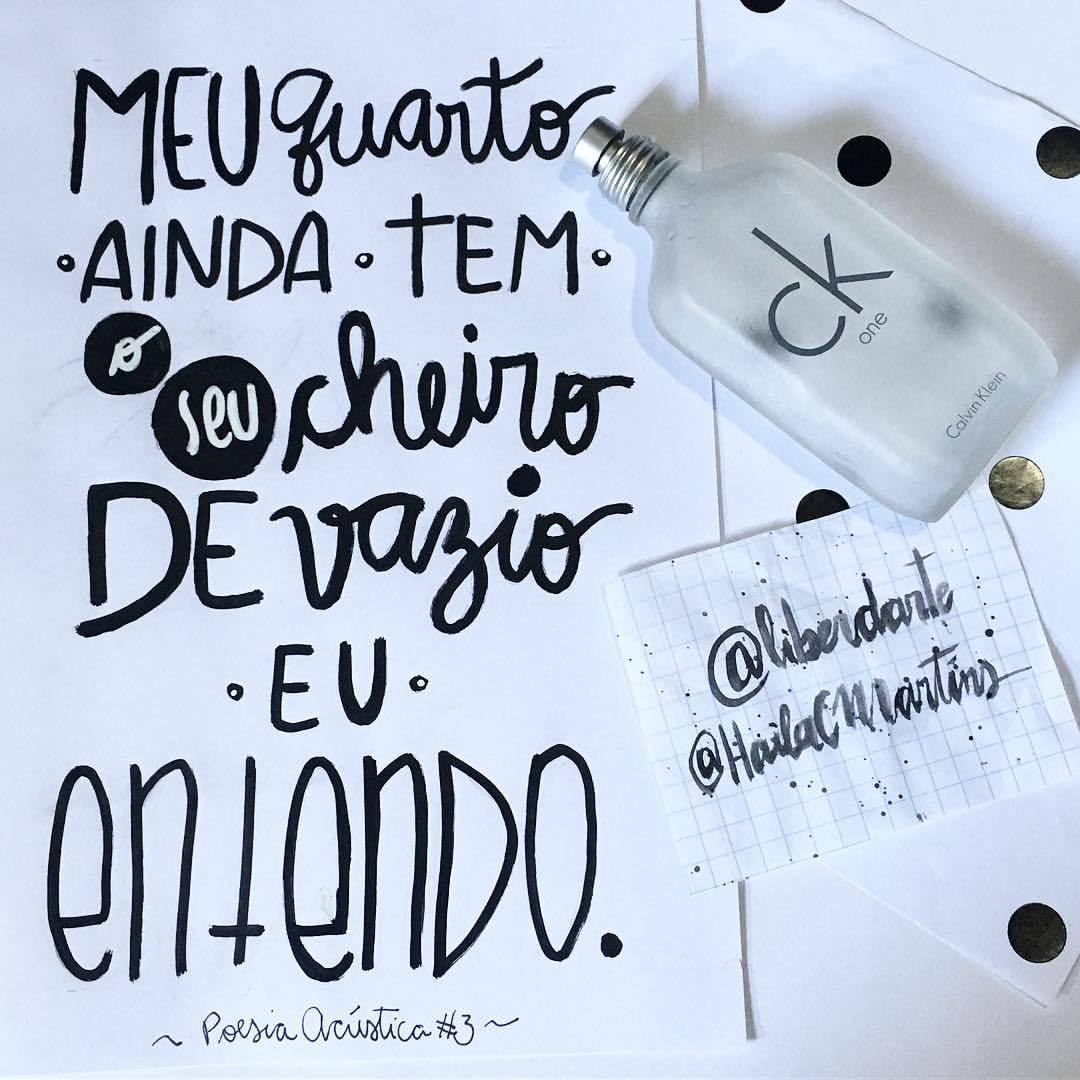 MEU quarto
• AINDA • TEM •
o seu cheiro
DE vazio
• EU •
entenDO.
~ Poesia Acústica #3 ~
ck
one
Calvin Klein
@liberdarte
@HailaCMMartins